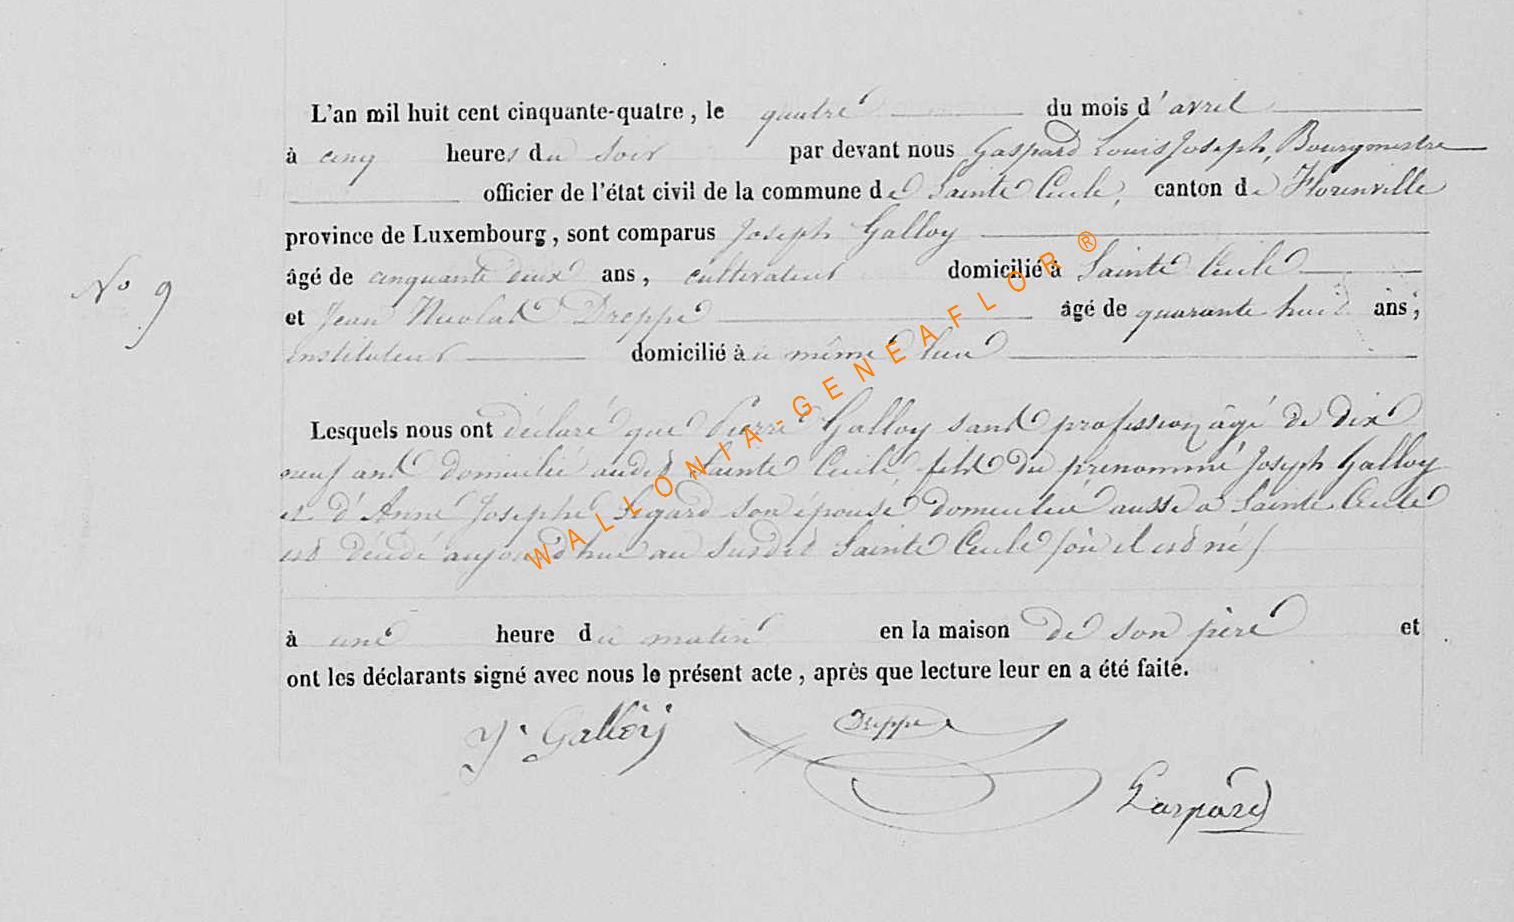 L'an mil huit cent cinquante-quatre, le quatre du mois d'avril
à cinq heures du soir par devant nous Gaspard Louis Joseph, Bourgmestre
officier de l'état civil de la commune de Sainte Cecile, canton de Florenville
province de Luxembourg, sont comparus Joseph Galloy
âgé de cinquante deux ans, cultivateur domicilié à Sainte Cecile
No 9
et Jean Nicolas Dreppe âgé de quarante huit ans;
instituteur domicilié à même lieu
Lesquels nous ont déclaré que Pierre Galloy sans profession âgé de dix
neuf ans domicilié audit Sainte Cecile fils du prénommé Joseph Galloy
et d'Anne Josephe son épouse domiciliée aussi a Sainte Cecile
est décédé aujourd'hui au susdit Sainte Cecile (où il est né)
à une heure du matin en la maison de son père et
ont les déclarants signé avec nous le présent acte, après que lecture leur en a été faite.
J. Galloy Dreppe
Gaspard
WALLONIA-GENEAFLOR®